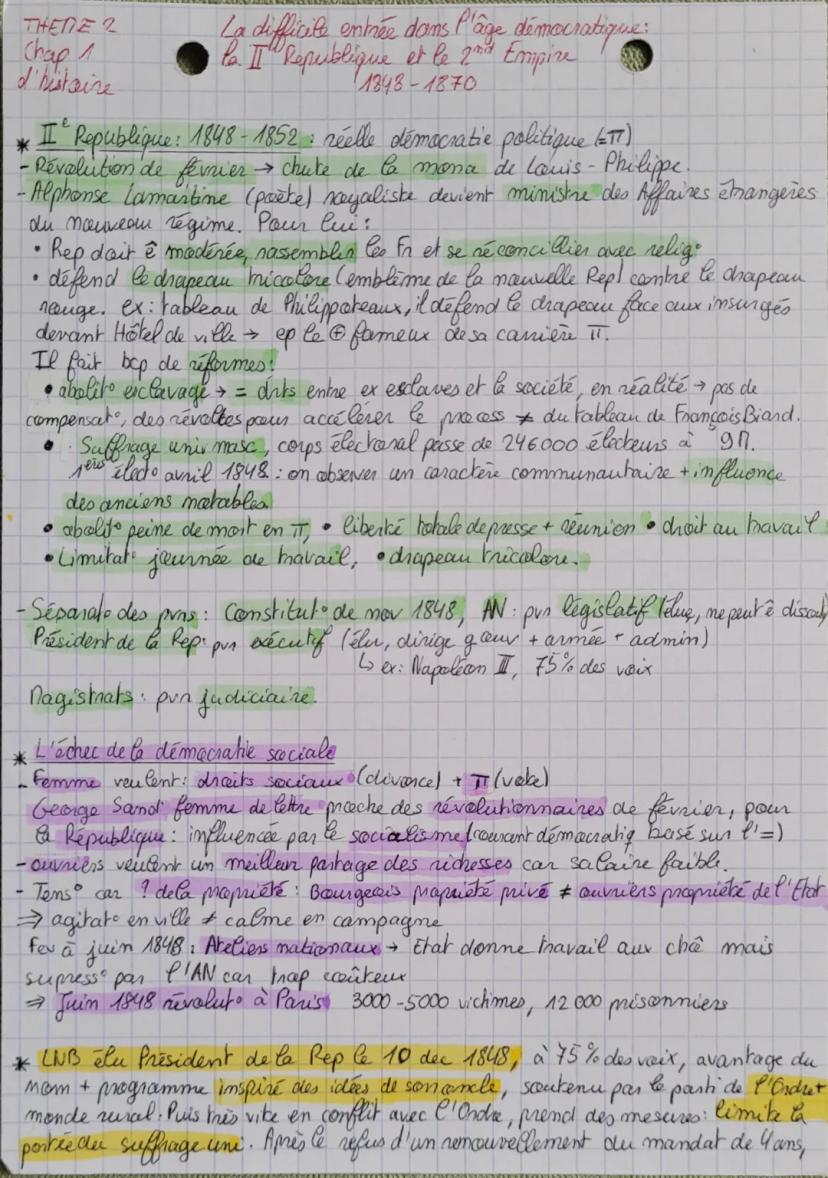 THEME 2
Chap 1
d'histoire
La difficile entrée dans l'âge démocratique:
la II^e République et le 2nd Empire
1848-1870
* II^e République: 1848-1852: réelle démocratie politique (=π)
- Révolution de février → chute de la mona de Louis-Philippe.
- Alphonse Lamartine (poète) royaliste devient ministre des Affaires étrangères
du nouveau régime. Pour lui:
• Rep doit ê modérée, rassembler les Fr et se réconcillier avec relig°
• défend le drapeau tricolore (emblème de la nouvelle Rep) contre le drapeau
rouge. ex: tableau de Philippoteaux, il défend le drapeau face aux insurgés
devant Hôtel de ville → ep le ⊕ fameux de sa carrière π.
Il fait bcp de réformes:
• abolit° esclavage → = drts entre ex esclaves et la société, en réalité → pas de
compensat°, des révoltes pour accélérer le process ≠ du tableau de François Biard.
• Suffrage univ masc, corps électoral passe de 246000 électeurs à 9M.
1ères élect° avril 1848: on observer un caractère communautaire + influence
des anciens notables
• abolit° peine de mort en π, • liberté totale de presse + réunion • droit au travail
• Limitat° journée de travail, • drapeau tricolore.
- Séparat° des pvrs: Constitut° de nov 1848, AN: pvr législatif (élue, ne peut ê
Président de la Rep: pvr exécutif (élu, dirige gouv + armée + admin)
↳ ex: Napoléon II, 75% des voix
Magistrats: pvr judiciaire.
* L'échec de la démocratie sociale
- Femme veulent: droits sociaux (divorce) + π (vote)
George Sand femme de lettre proche des révolutionnaires de février, pour
la République: influencée par le socialisme (courant démocratiq basé sur l'=)
- ouvriers veulent un meilleur partage des richesses car salaire faible.
- Tens° car ? de la propriété: Bourgeois propriété privé ≠ ouvriers propriété de l'Etat
⇒ agitat° en ville ≠ calme en campagne
Fev à juin 1848: Ateliers nationaux → Etat donne travail aux chô mais
supress° par l'AN car trop coûteux
⇒ Juin 1848 révolut° à Paris 3000-5000 victimes, 12 000 prisonniers
* LNB élu Président de la Rep le 10 dec 1848, à 75% des voix, avantage du
nom + programme inspiré des idées de son oncle, soutenu par le parti de l'Ordre+
monde rural. Puis très vite en conflit avec l'Ordre, prend des mesures: limite la
portée du suffrage uni. Après le refus d'un renouvellement du mandat de 4 ans,